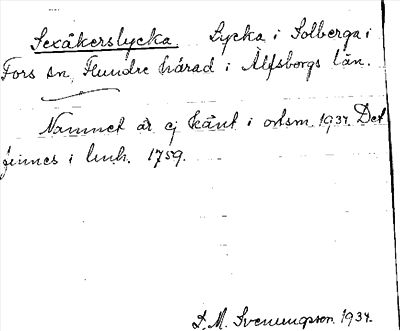 Sexåkerslycka. Lycka i Solberga i
Fors sn, Flundre härad i Älfsborgs län.
Namnet är ej känt i ortsn. 1934. Det
finnes i lmh. 1759.
D. M. Svenungsson. 1934.